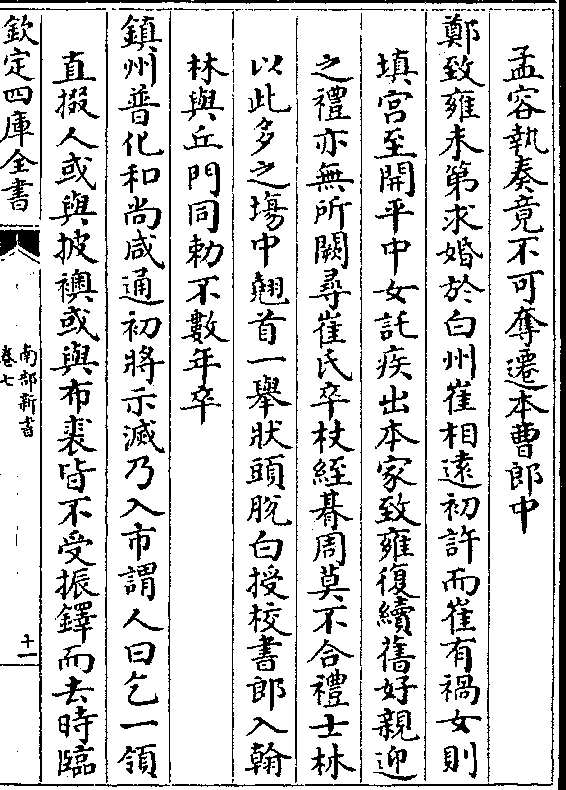 孟容執奏竟不可奪遷本曹郎中
鄭致雍未第求婚於白州崔相遠初許而崔有禍女則
填宮至開平中女託疾出本家致雍復續舊好親迎
之禮亦無所闕尋崔氏卒杖絰朞周莫不合禮士林
以此多之塲中翹首一舉狀頭脫白授校書郎入翰
林與丘門同勅不數年卒
鎮州普化和尚咸通初將示滅乃入市謂人曰乞一領
直掇人或與披襖或與布裘皆不受振鐸而去時臨
欽定四庫全書
南部新書
卷七
十一